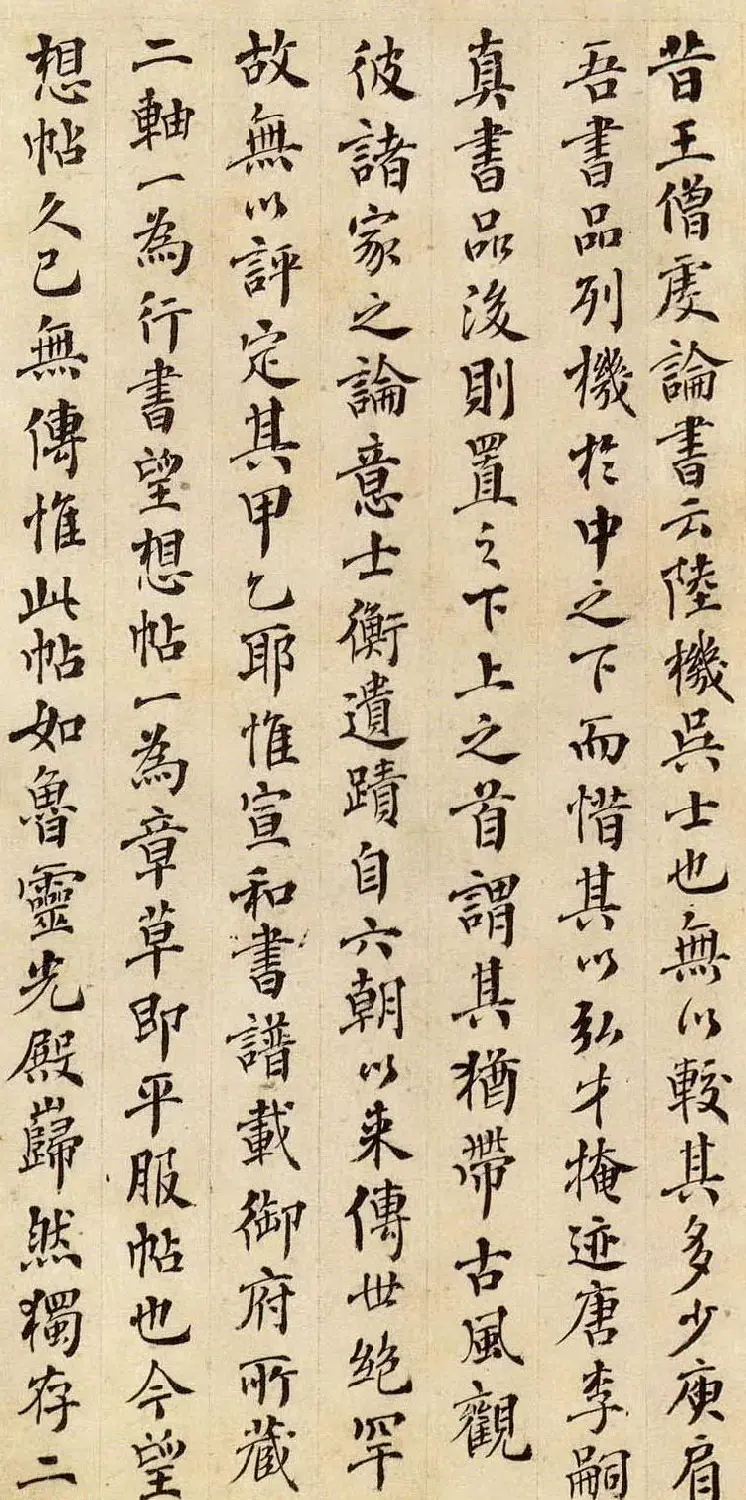 昔王僧虔論書云陸機吳士也無以較其多少庾肩
吾書品列機於中之下而惜其以弘才掩迹唐李嗣
真書品後則置之下上之首謂其猶帶古風觀
彼諸家之論意士衡遺蹟自六朝以来傳世絶罕
故無以評定其甲乙耶惟宣和書譜載御府所藏
二軸一為行書望想帖一為章草即平服帖也今望
想帖久已無傳惟此帖如魯靈光殿巋然獨存二